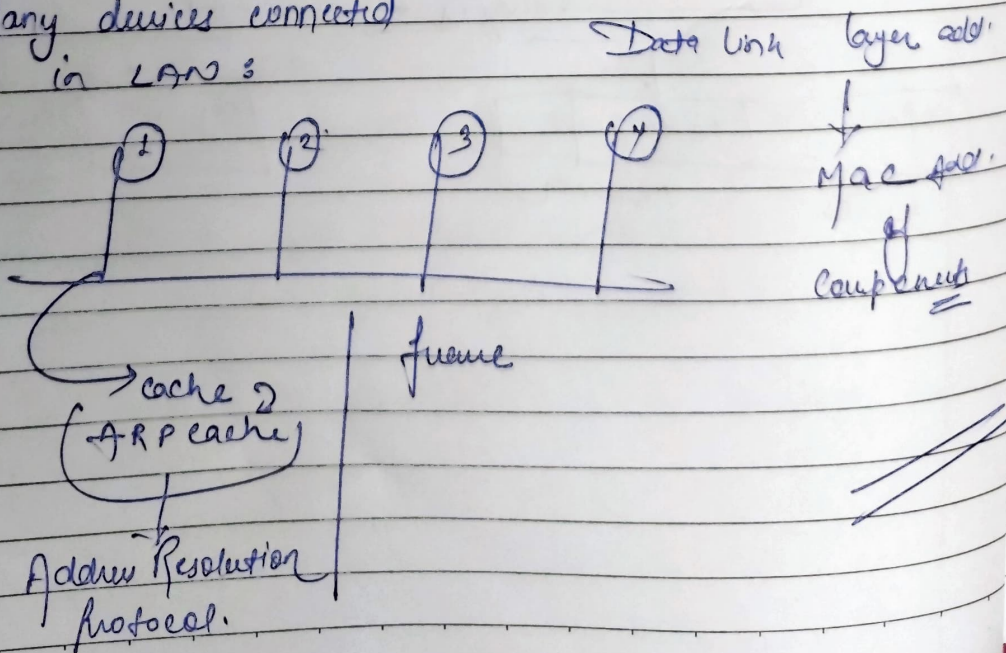 any devices connected
in LAN :
Data link layer add.
Mac Add.
of
Components
1 2 3 4
frame
cache
(ARP cache)
Address Resolution
Protocol.